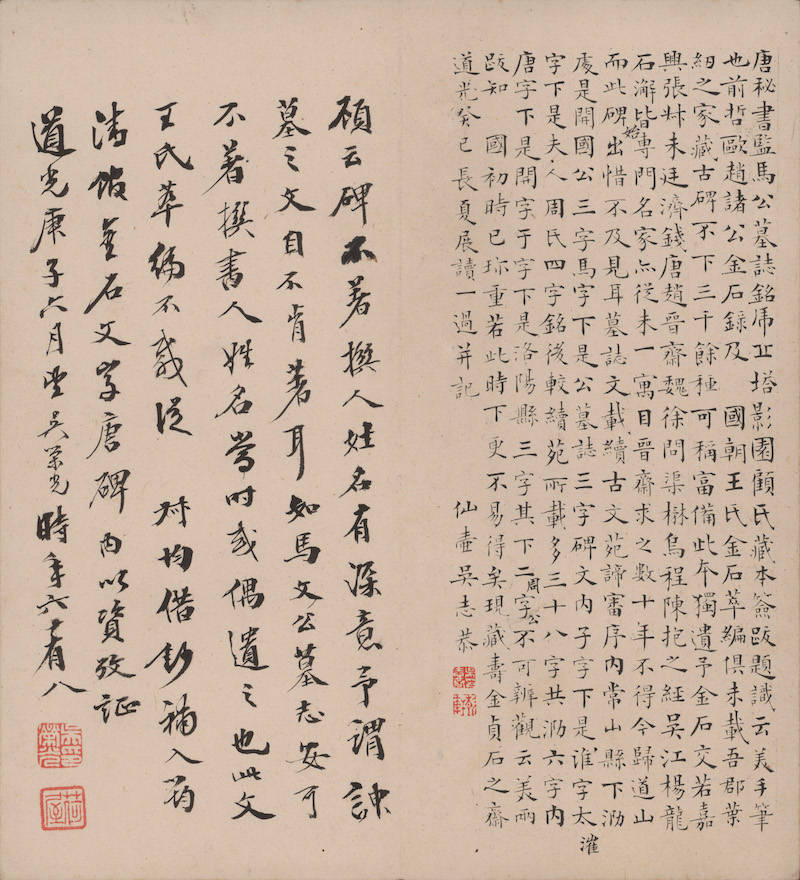 唐秘書監馬公墓誌銘虎丘塔影園顧氏藏本簽跋題識云美手筆
也前哲歐趙諸公金石錄及 國朝王氏金石萃編俱未載吾郡葉
紉之家藏古碑不下三千餘種可稱富備此本獨遺予金石交若嘉
興張叔未廷濟錢唐趙晉齋魏徐問渠楙烏程陳抱之經吳江楊龍
石澥皆專門名家亦從未一寓目晉齋求之數十年不得今歸道山
而此碑始出惜不及見耳墓誌文載續古文苑諦審序內常山縣下泐
處是開國公三字馬字下是公墓誌三字碑文內子字下是淮字太
漼
字下是夫人周氏四字銘後較續苑所載多三十八字共泐六字內
唐字下是開字于字下是洛陽縣三字其下二字周公不可辨觀云美兩
跋知 國初時已珍重若此時下更不易得矣現藏壽金貞石之齋
道光癸巳長夏展讀一過并記 仙壺吳志恭
顧云碑不著撰人姓名有深意予謂諛
墓之文自不肯著耳如馬文公墓志安可
不著撰書人姓名當時或偶遺之也此文
王氏萃編不載從 對均借鈔補入筠
清館金石文字唐碑內以資攷証
道光庚子六月望吳榮光時年六十有八
荷屋